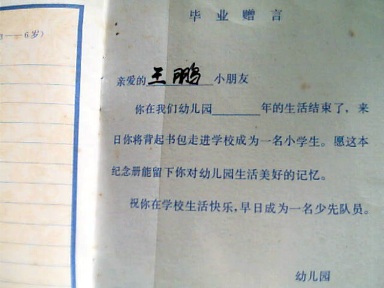 毕业赠言
亲爱的王鹏小朋友
你在我们幼儿园______年的生活结束了，来
日你将背起书包走进学校成为一名小学生。愿这本
纪念册能留下你对幼儿园生活美好的记忆。
祝你在学校生活快乐，早日成为一名少先队员。
幼儿园
—6岁）